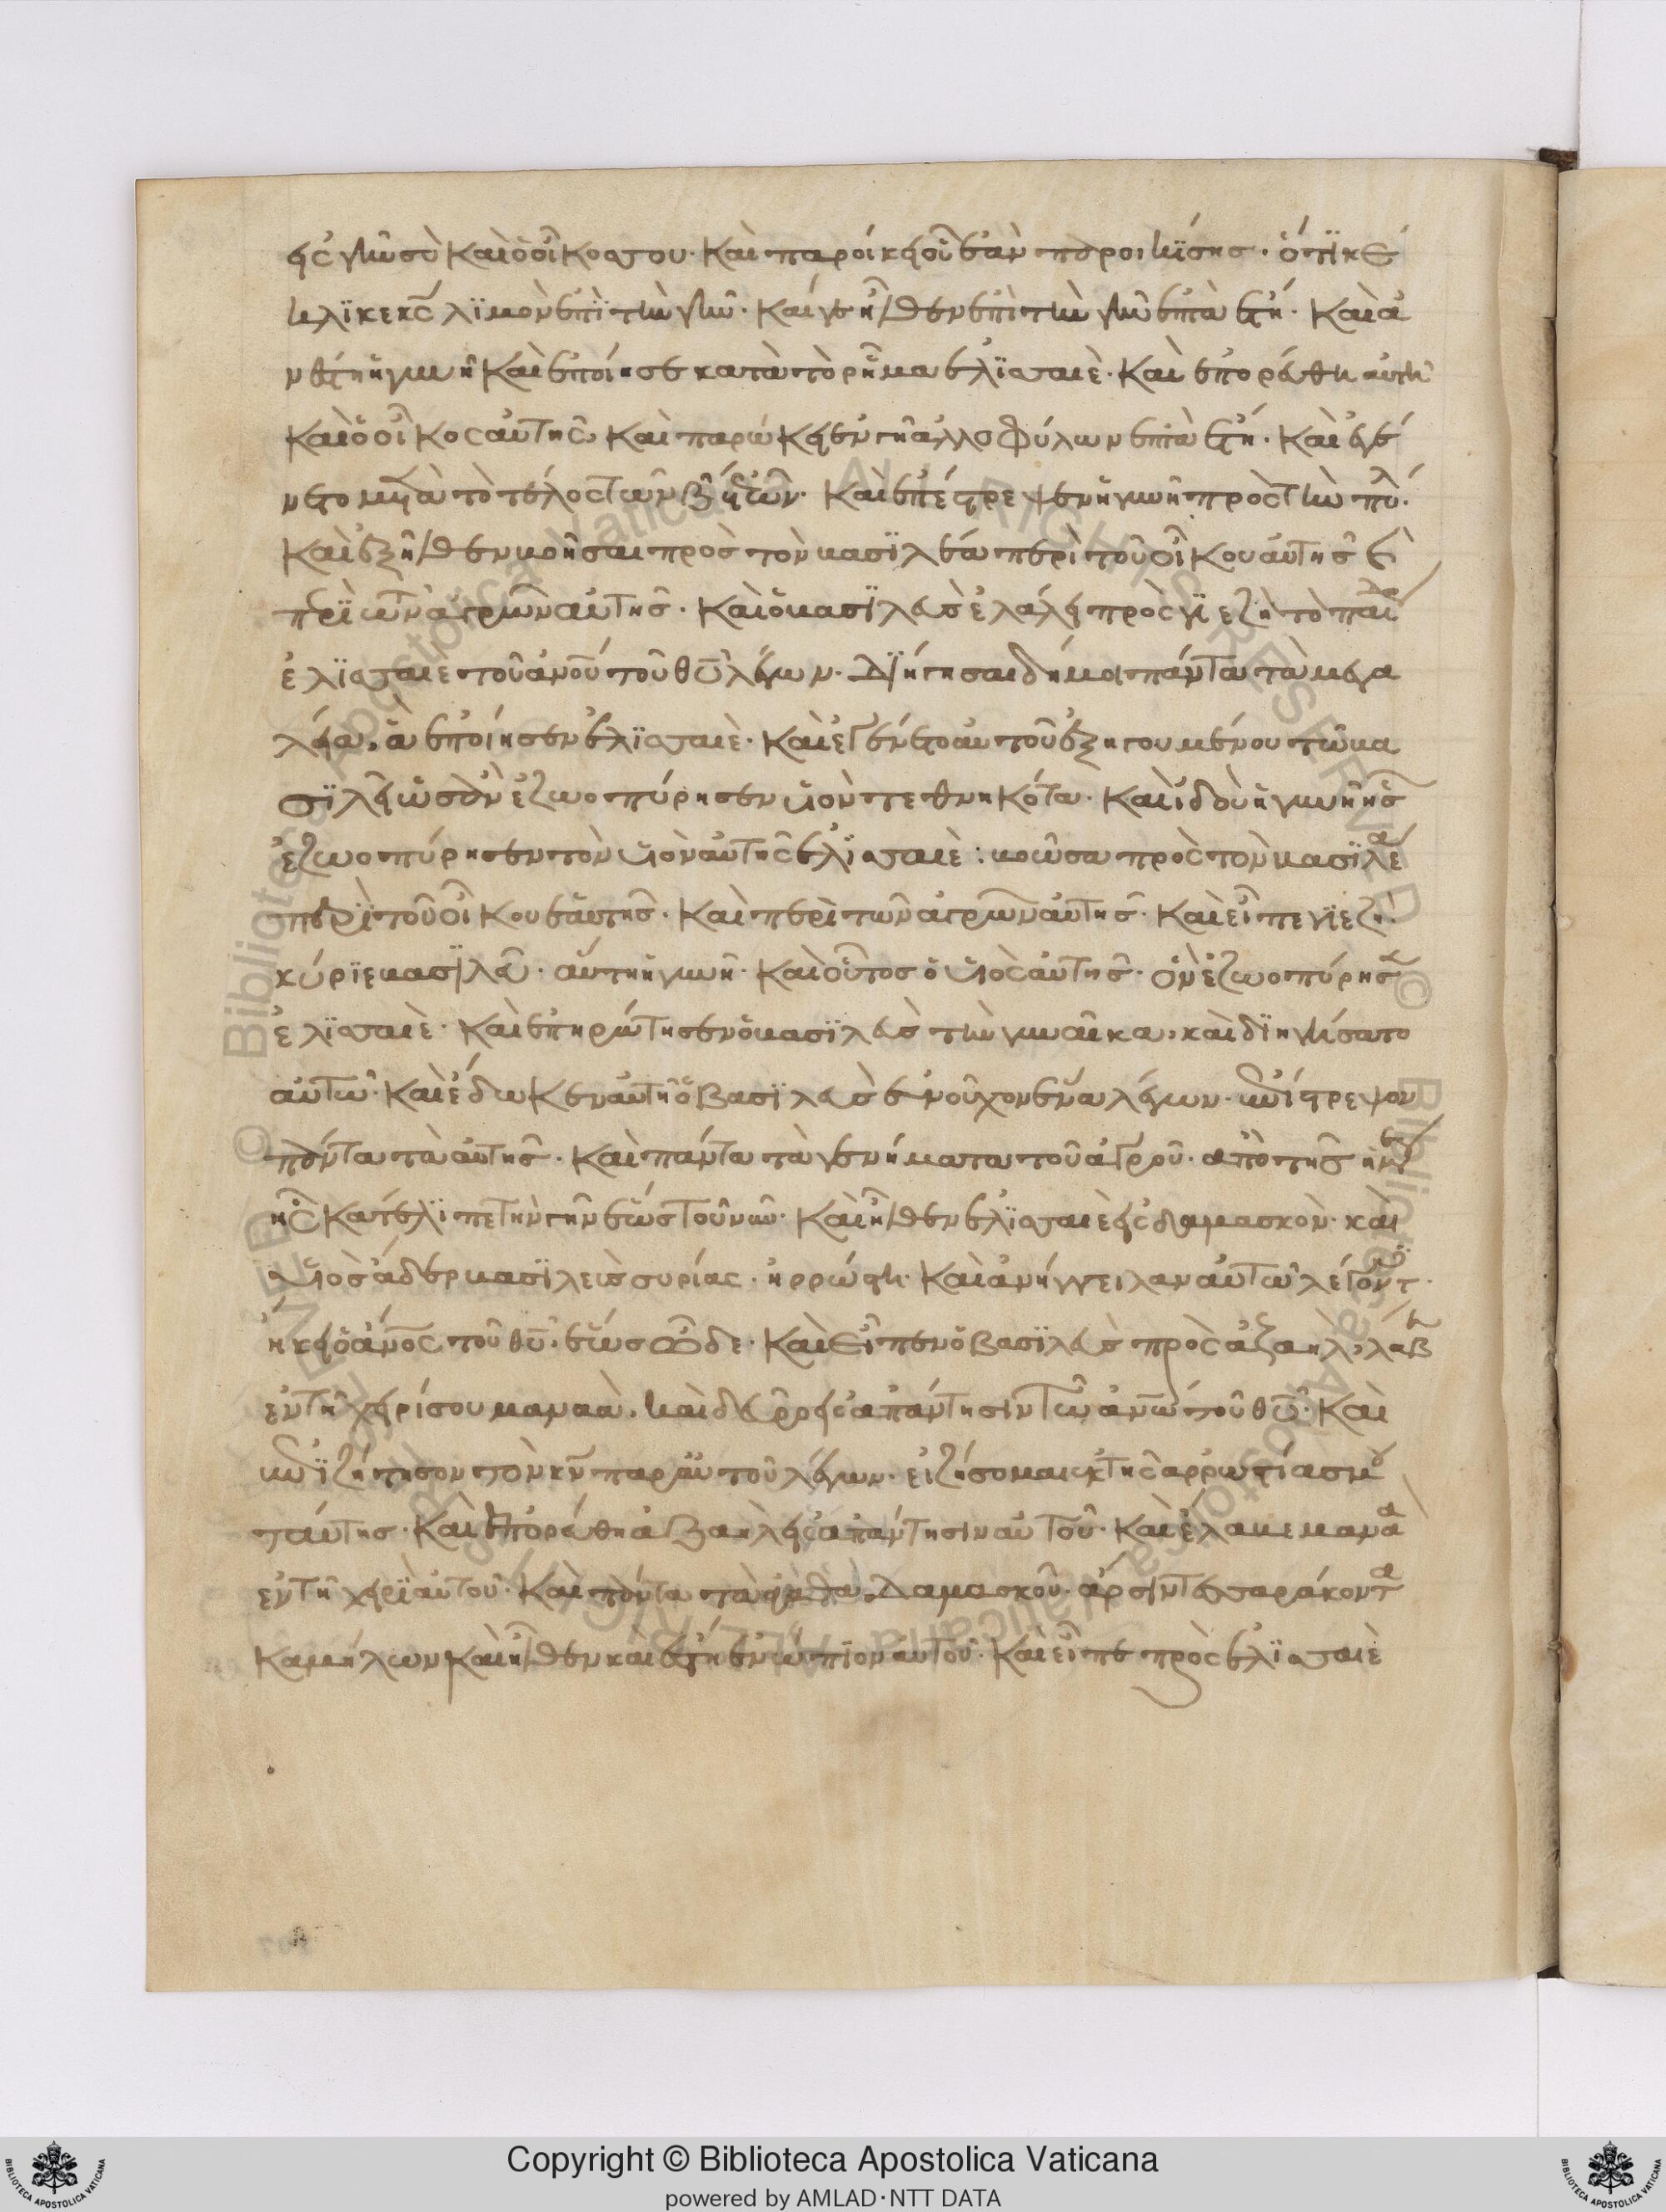 εἰς γῆν σὺ καὶ ὁ οἶκός σου· καὶ παροίκει οὗ ἐὰν παροικήσης· ὅτι κέ
κληκε κς̅ λιμὸν ἐπὶ τὴν γῆν· καί γε ἦλθεν ἐπὶ τὴν γῆν ἑπτὰ ἔτη· καὶ ἀ
νέστη ἡ γυνὴ καὶ ἐποίησε κατὰ τὸ ῥῆμα ἐλισσαιὲ· καὶ ἐπορεύθη αὐτὴ
καὶ ὁ οἶκος αὐτῆς, καὶ παρώκει ἐν γῆ ἀλλοφύλων ἑπτὰ ἔτη· καὶ ἐγέ
νετο μετὰ τὸ τέλος τῶν ζ̅ ἐτῶν· καὶ ἐπέστρεψεν ἡ γυνὴ πρὸς τὴν πόλ·
καὶ ἐξῆλθεν βοῆσαι πρὸς τὸν βασιλέα περὶ τοῦ οἴκου αὐτῆς καὶ
περὶ τῶν ἀγρῶν αὐτῆς· καὶ ὁ βασιλεὺς ἐλάλει πρὸς γιεζὴ τὸ παιδ
ἐλισσαιὲ τοῦ ἀνου̅ τοῦ θυ̅ λέγων· διήγησαι δή μοι πάντα τὰ μεγα
λεῖα, ἃ ἐποίησεν ἐλισσαιὲ· καὶ ἐγένετο αὐτοῦ ἐξηγουμένου τῶ βα
σιλεῖ ὡς ἐζωοπύρησεν υἱὸν τεθνηκότα· καὶ ἰδοὺ ἡ γυνὴ ἧς
ἐζωοπύρησεν τὸν υἱὸν αὐτῆς ἐλισσαιὲ: βοῶσα πρὸς τὸν βασιλέα
περὶ τοῦ οἴκου ἑαυτῆς· καὶ περὶ τῶν ἀγρῶν αὐτῆς· καὶ εἶπε γιεζή·
κύριε βασιλεῦ· αὕτη ἡ γυνὴ· καὶ οὗτος ὁ υἱὸς αὐτῆς· ὃν ἐζωοπύρησεν
ἐλισσαιὲ· καὶ ἐπηρώτησεν ὁ βασιλεὺς τὴν γυναῖκα, καὶ διηγήσατο
αὐτῶ· καὶ ἔδωκεν αὐτῆ ὁ βασιλεὺς εὐνοῦχον ἕνα λέγων· ἐπίστρεψον
πάντα τὰ αὐτῆς· καὶ πάντα τὰ γενήματα τοῦ ἀγροῦ· ἀπὸ τῆς ἡμ
ἧς κατέλιπε τὴν γῆν ἕως τοῦ νῦν· καὶ ἦλθεν ἐλισσαιὲ εἰς δαμασκὸν· καὶ
υἱὸς ἄδερ βασιλεὺς συρίας· ἠρρώστει· καὶ ἀνήγγειλαν αὐτῶ λέγοντ·
ἥκει ὁ ἄνος̅ τοῦ θυ̅· ἕως ὧδε· καὶ εἶπεν ὁ βασιλεὺς πρὸς ἀζαὴλ, λάβε
ἐν τῆ χειρί σου μαναὰ, καὶ δεῦρο εἰς ἀπάντησιν τῶ ἀνω̅ τοῦ θυ̅· καὶ
ἐπιζήτησον τὸν κν̅ παρ' αὐτοῦ λέγων· εἰ ζήσομαι ἐκ τῆς ἀρρωστίας μου
ταύτης· καὶ ἐπορεύθη ἀζαὴλ εἰς ἀπάντησιν αὐτοῦ· καὶ ἔλαβε μαναὰ
ἐν τῆ χειρὶ αὐτοῦ· καὶ πάντα τὰ ἀγαθὰ δαμασκοῦ· ἄρσιν τεσσαράκοντα
καμήλων καὶ ἦλθεν καὶ ἔστη ἐνώπιον αὐτοῦ· καὶ εἶπε πρὸς ἐλισσαιὲ
Copyright © Biblioteca Apostolica Vaticana
powered by AMLAD·NTT DATA